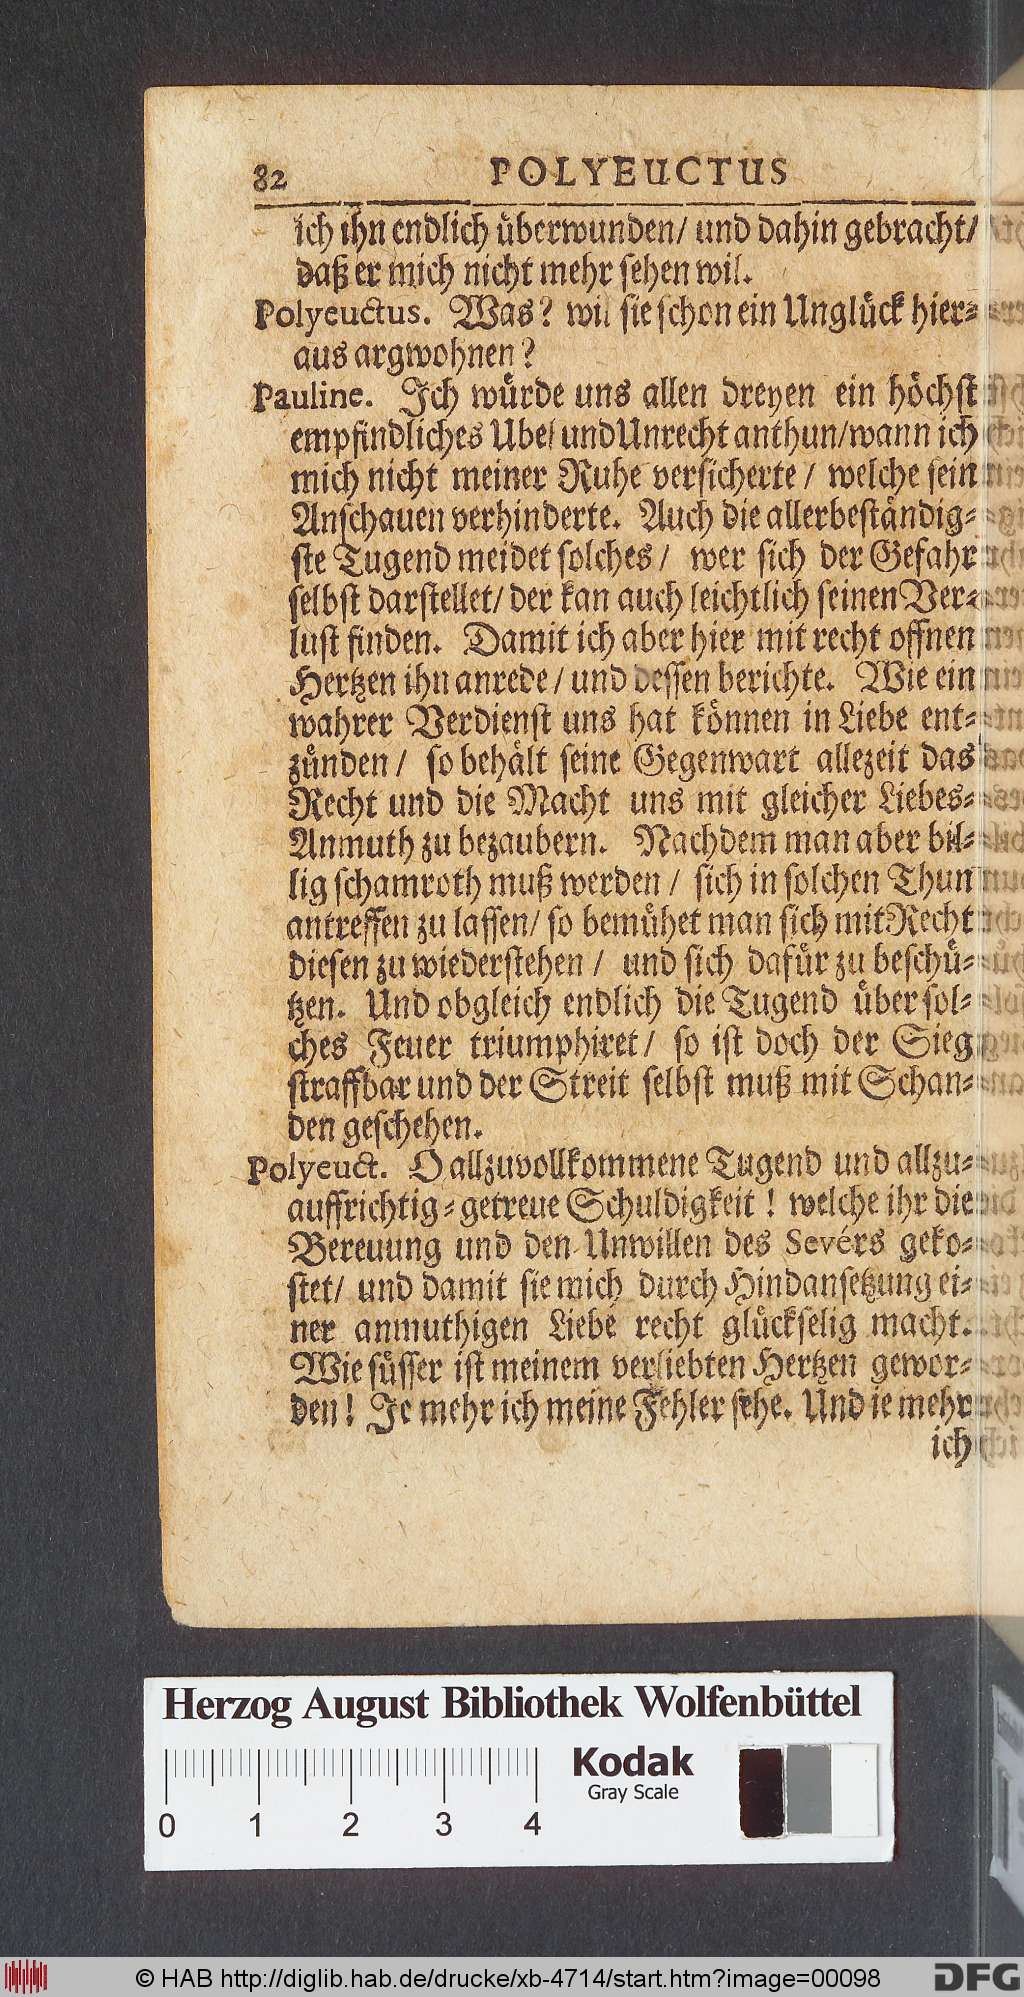 82 POLYEUCTUS
ich ihn endlich überwunden/ und dahin gebracht/
daß er mich nicht mehr sehen wil.
Polyeuctus. Was? wil sie schon ein Unglück hier-
aus argwohnen?
Pauline. Ich würde uns allen dreyen ein höchst
empfindliches Ubel und Unrecht anthun/wann ich
mich nicht meiner Ruhe versicherte/ welche sein
Anschauen verhinderte. Auch die allerbeständig-
ste Tugend meidet solches/ wer sich der Gefahr
selbst darstellet/ der kan auch leichtlich seinen Ver-
lust finden. Damit ich aber hier mit recht offnen
Hertzen ihn anrede/ und dessen berichte. Wie ein
wahrer Verdienst uns hat können in Liebe ent-
zünden/ so behält seine Gegenwart allezeit das
Recht und die Macht uns mit gleicher Liebes-
Anmuth zu bezaubern. Nachdem man aber bil-
lig schamroth muß werden/ sich in solchen Thun
antreffen zu lassen/ so bemühet man sich mit Recht
diesen zu wiederstehen/ und sich dafür zu beschü-
tzen. Und obgleich endlich die Tugend über sol-
ches Feuer triumphiret/ so ist doch der Sieg
straffbar und der Streit selbst muß mit Schan-
den geschehen.
Polyeuct. O allzuvollkommene Tugend und allzu-
auffrichtig-getreue Schuldigkeit! welche ihr die
Bereuung und den Unwillen des Sevérs geko-
stet/ und damit sie mich durch Hindansetzung ei-
ner anmuthigen Liebe recht glückselig macht.
Wie süsser ist meinem verliebten Hertzen gewor-
den! Je mehr ich meine Fehler sehe. Und ie mehr
ich
Herzog August Bibliothek Wolfenbüttel
Kodak
Gray Scale
0 1 2 3 4
© HAB http://diglib.hab.de/drucke/xb-4714/start.htm?image=00098 DFG